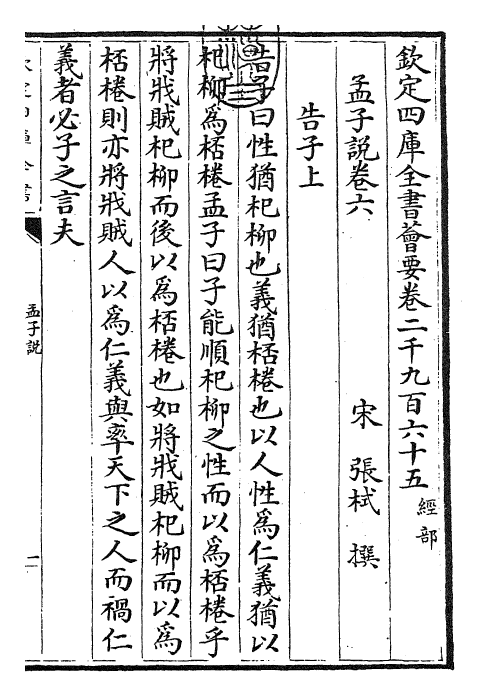 欽定四庫全書薈要卷二千九百六十五 經部
孟子說卷六
宋 張栻 撰
告子上
告子曰性猶杞柳也義猶桮棬也以人性為仁義猶以
杞柳為桮棬孟子曰子能順杞柳之性而以為桮棬乎
將戕賊杞柳而後以為桮棬也如將戕賊杞柳而以為
桮棬則亦將戕賊人以為仁義與率天下之人而禍仁
義者必子之言夫
孟子說